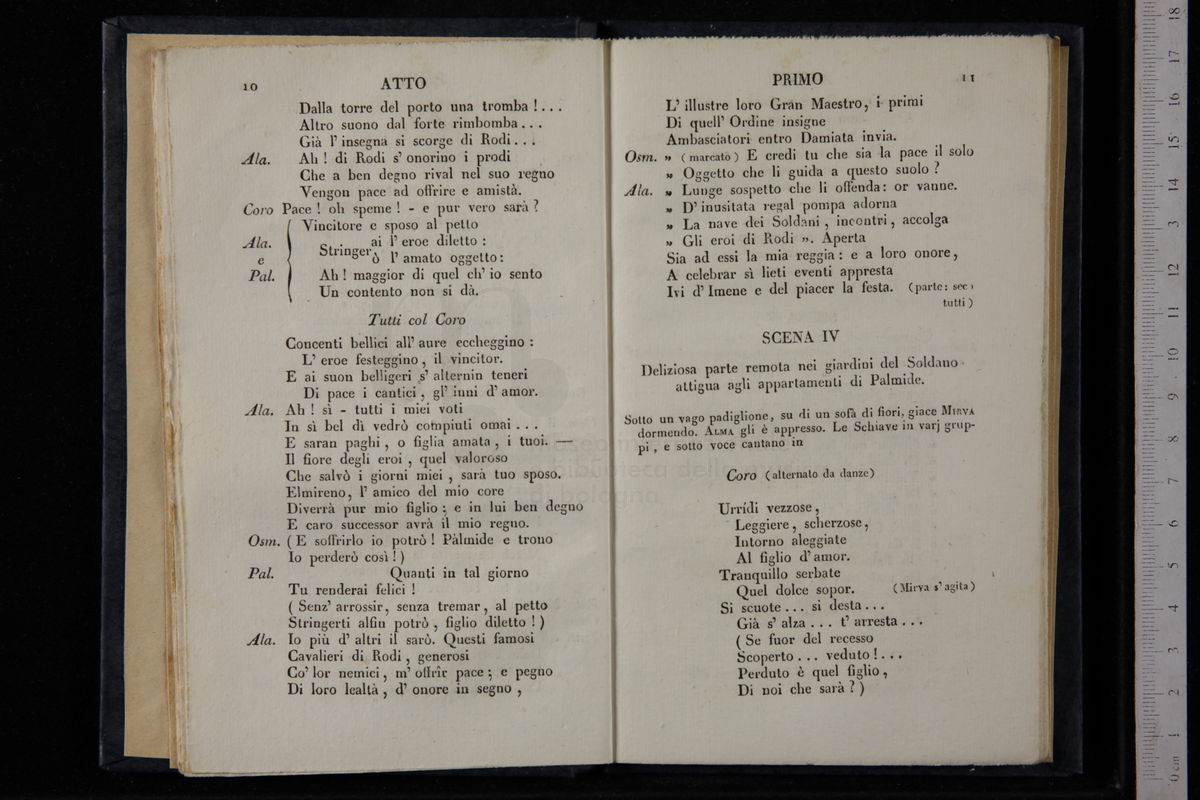 10 ATTO
Dalla torre del porto una tromba ! . . .
Altro suono dal forte rimbomba . . .
Già l' insegna si scorge di Rodi . . .
Ala. Ah ! di Rodi s' onorino i prodi
Che a ben degno rival nel suo regno
Vengon pace ad offrire e amistà.
Coro Pace ! oh speme ! - e pur vero sarà ?
Vincitore e sposo al petto
Ala. e Pal. Stringer ai l' eroe diletto :
ò l' amato oggetto :
Ah ! maggior di quel ch' io sento
Un contento non si dà.
Tutti col Coro
Concenti bellici all' aure eccheggino :
L' eroe festeggino , il vincitor.
E ai suon belligeri s' alternin teneri
Di pace i cantici , gl' inni d' amor.
Ala. Ah ! sì - tutti i miei voti
In sì bel dì vedrò compiuti omai . . .
E saran paghi , o figlia amata , i tuoi. —
Il fiore degli eroi , quel valoroso
Che salvò i giorni miei , sarà tuo sposo.
Elmireno, l' amico del mio core
Diverrà pur mio figlio ; e in lui ben degno
E caro successor avrà il mio regno.
Osm. ( E soffrirlo io potrò ! Pàlmide e trono
Io perderò così ! )
Pal. Quanti in tal giorno
Tu renderai felici !
( Senz' arrossir, senza tremar, al petto
Stringerti alfin potrò , figlio diletto ! )
Ala. Io più d' altri il sarò. Questi famosi
Cavalieri di Rodi , generosi
Co' lor nemici, m' offrîr pace ; e pegno
Di loro lealtà , d' onore in segno ,
PRIMO 11
L' illustre loro Gran Maestro, i primi
Di quell' Ordine insigne
Ambasciatori entro Damiata invia.
Osm. » ( marcato ) E credi tu che sia la pace il solo
» Oggetto che li guida a questo suolo ?
Ala. » Lunge sospetto che li offenda: or vanne.
» D' inusitata regal pompa adorna
» La nave dei Soldani , incontri , accolga
» Gli eroi di Rodi ». Aperta
Sia ad essi la mia reggia : e a loro onore,
A celebrar sì lieti eventi appresta
Ivi d' Imene e del piacer la festa. (parte: seco
tutti )
SCENA IV
Deliziosa parte remota nei giardini del Soldano
attigua agli appartamenti di Palmide.
Sotto un vago padiglione, su di un sofà di fiori, giace MIRVA
dormendo. ALMA gli è appresso. Le Schiave in varj grup-
pi , e sotto voce cantano in
Coro ( alternato da danze)
Urrídi vezzose ,
Leggiere , scherzose ,
Intorno aleggiate
Al figlio d' amor.
Tranquillo serbate
Quel dolce sopor. ( Mirva s' agita )
Si scuote . . . si desta . . .
Già s' alza . . . t' arresta . . .
( Se fuor del recesso
Scoperto . . . veduto ! . . .
Perduto è quel figlio ,
Di noi che sarà ? )
0 cm 1 2 3 4 5 6 7 8 9 10 11 12 13 14 15 16 17 18